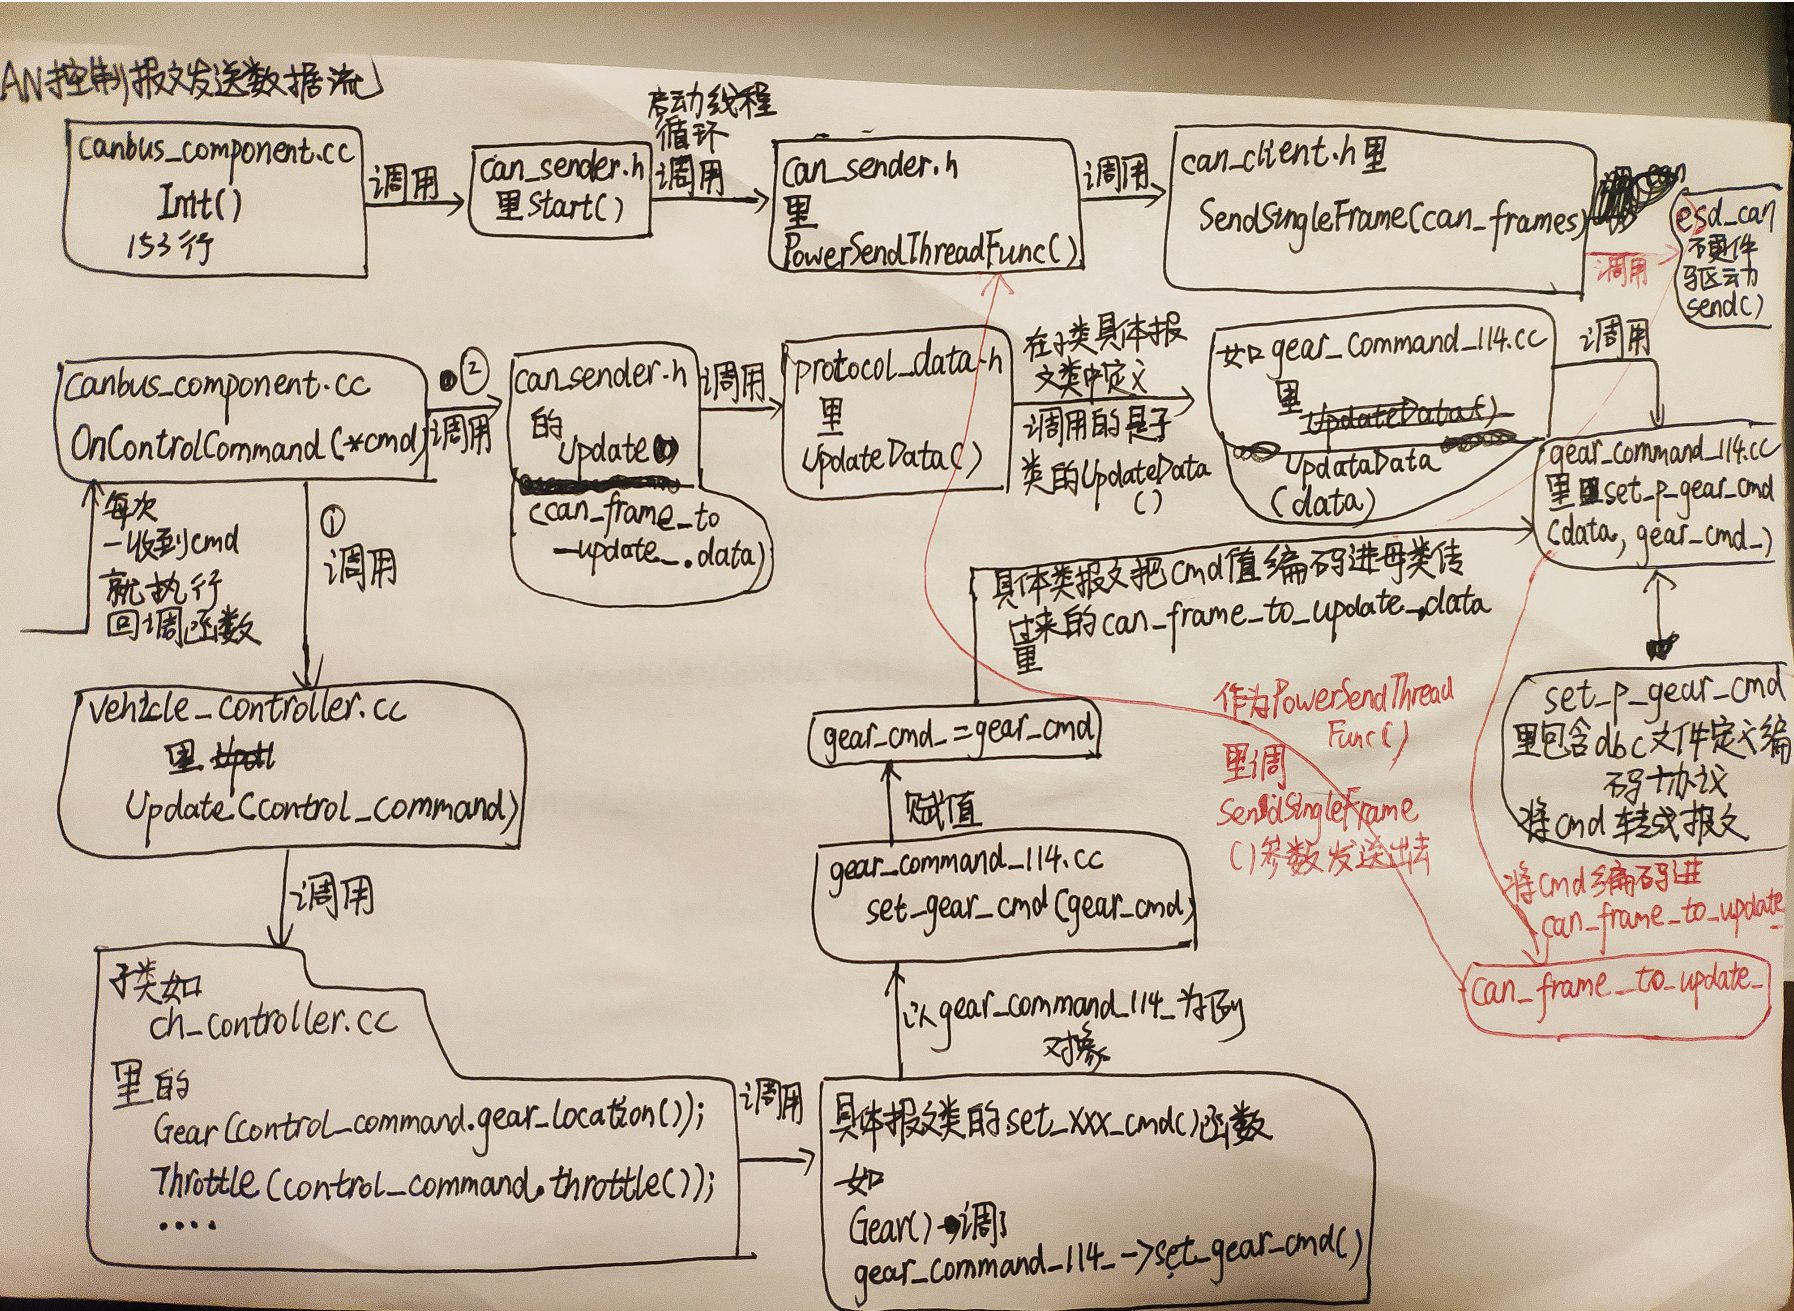 AN控制报文发送数据流
canbus_component.cc
Init()
153行
调用
can_sender.h
里Start()
启动线程
循环
调用
can_sender.h
里
PowerSendThreadFunc()
调用
can_client.h里
SendSingleFrame(can_frames)
can
调用
esd_can
硬件
驱动
send()
canbus_component.cc
OnControlCommand(*cmd)
②
调用
can_sender.h
的
Update
(can_frame_to
_update_.data)
调用
protocol_data.h
里
UpdateData()
在子类具体报
文类中定义
调用的是子
类的UpdateData
()
如gear_Command_114.cc
里
UpdataData
(data)
调用
gear_command_114.cc
里set_p_gear_cmd
(data, gear_cmd_)
每次
一收到cmd
就执行
回调函数
①
调用
具体类报文把cmd值编码进母类传
过来的can_frame_to_update_.data
里
set_p_gear_cmd
里包含dbc文件定义编
码协议
将cmd转成报文
vehicle_controller.cc
里
Update(control_command)
gear_cmd_=gear_cmd
赋值
作为PowerSendThread
Func()
里调
SendSingleFrame
()参数发送出去
gear_command_114.cc
set_gear_cmd(gear_cmd)
将cmd编码进
can_frame_to_update_
can_frame_to_update_
调用
子类如
ch_controller.cc
里的
Gear(control_command.gear_location());
Throttle(control_command.throttle());
....
调用
以gear_command_114_为例
对象
具体报文类的set_xxx_cmd()函数
如
Gear()调了
gear_command_114_->set_gear_cmd()